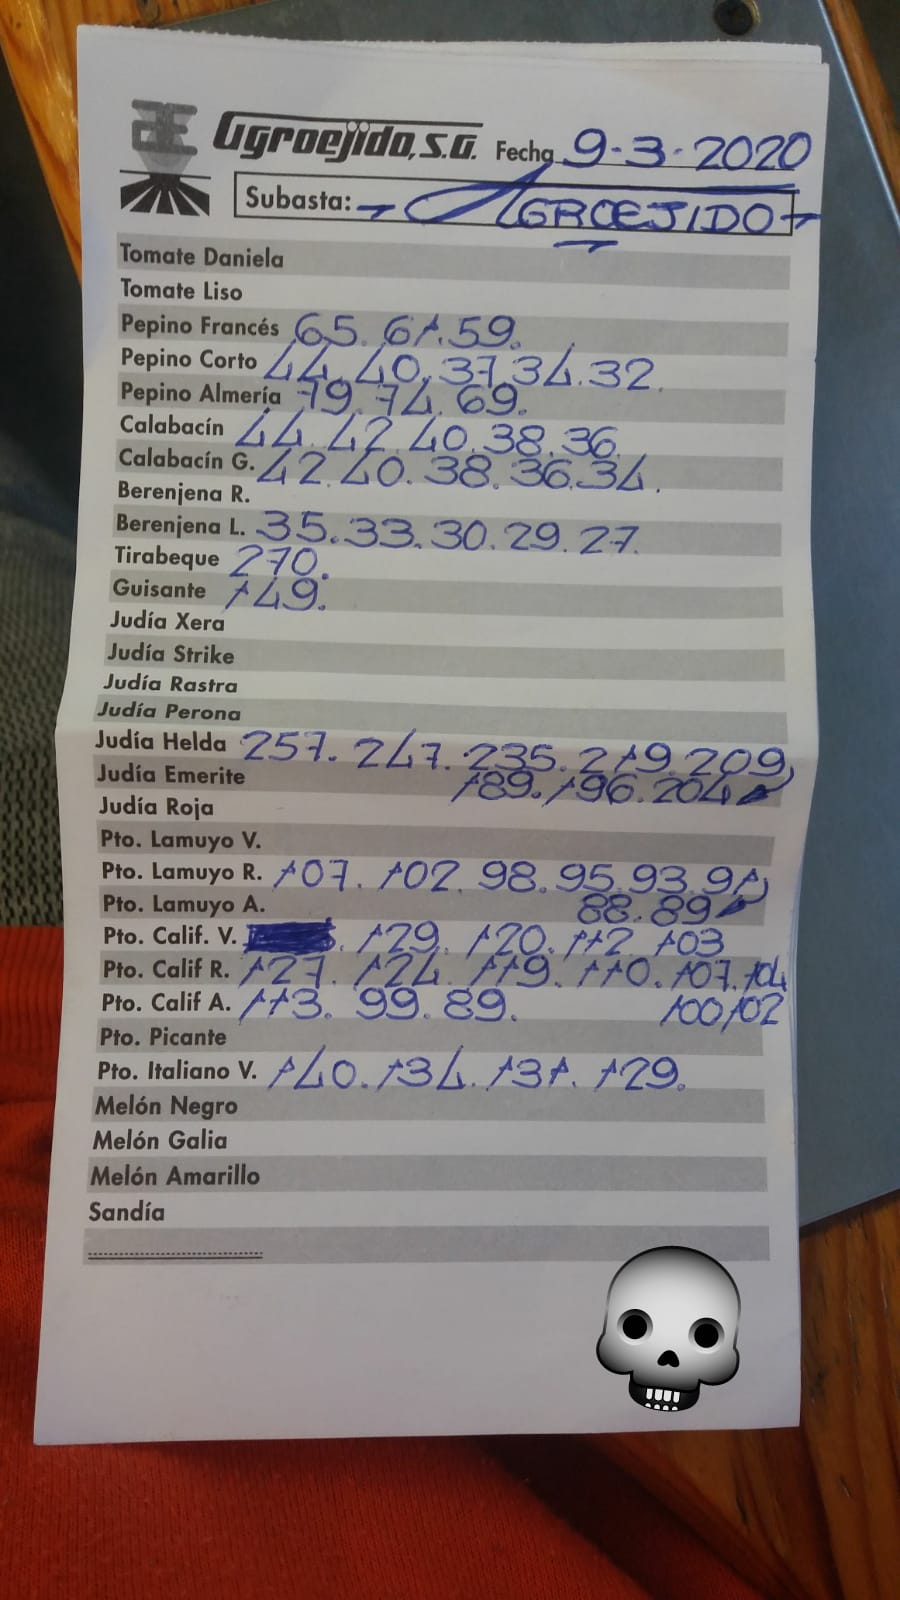 Agroejido, S.A. Fecha 9-3-2020
Subasta: AGROEJIDO
Tomate Daniela
Tomate Liso
Pepino Francés 65. 61. 59.
Pepino Corto 44. 40. 37. 34. 32.
Pepino Almería 79. 74. 69.
Calabacín 44. 42. 40. 38. 36.
Calabacín G. 42. 40. 38. 36. 34.
Berenjena R.
Berenjena L. 35. 33. 30. 29. 27.
Tirabeque 270.
Guisante 149.
Judía Xera
Judía Strike
Judía Rastra
Judía Perona
Judía Helda 257. 247. 235. 219. 209
Judía Emerite 189. 196. 204
Judía Roja
Pto. Lamuyo V.
Pto. Lamuyo R. 107. 102. 98. 95. 93. 91
Pto. Lamuyo A. 88. 89
Pto. Calif. V. 129. 120. 112. 103
Pto. Calif R. 127. 124. 119. 110. 107. 104
Pto. Calif A. 113. 99. 89. 100 102
Pto. Picante
Pto. Italiano V. 140. 134. 131. 129.
Melón Negro
Melón Galia
Melón Amarillo
Sandía